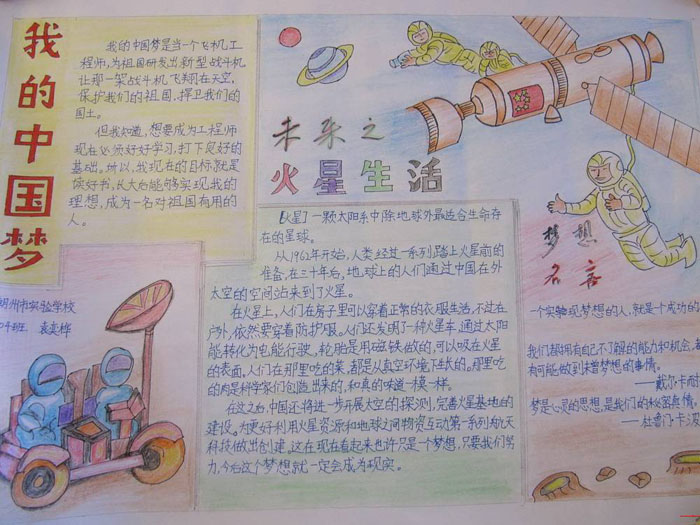 我的中国梦
我的中国梦是当一个飞机工
程师,为祖国研发出新型战斗机
让那一架战斗机飞翔在天空,
保护我们的祖国,捍卫我们的
国土。
但我知道,想要成为工程师
现在必须好好学习,打下良好的
基础。所以,我现在的目标就是
读好书,长大后能够实现我的
理想,成为一名对祖国有用的
人。
州市实验学校
班
未来之
火星生活
【火星】一颗太阳系中除地球外最适合生命存
在的星球。
从1962年开始,人类经过一系列踏上火星前的
准备,在三十年后,地球上的人们通过中国在外
太空的空间站来到了火星。
在火星上,人们在房子里可以穿着正常的衣服生活,不过在
户外,依然要穿着防护服。人们还发明了一种火星车,通过太阳
能转化为电能行驶,轮胎是用磁铁做的,可以吸在火星
的表面,人们在那里吃的菜,都是从真空环境下生长的。那里吃
的肉是科学家们创造出来的,和真的味道一模一样。
在这之后,中国还将进一步开展太空的探测,完善火星基地的
建设,为更好利用火星资源和地球之间物资互动第一系列航天
科技做出创建,这在现在看起来也许只是一个梦想,只要我们努
力,今后这个梦想就一定会成为现实。
梦想
名言
一个实现梦想的人,就是一个成功的
我们都拥有自己不了解的能力和机会,都
有可能做到未曾梦想的事情。
——戴尔·卡耐
梦是心灵的思想,是我们的秘密真情。
——杜鲁门·卡波